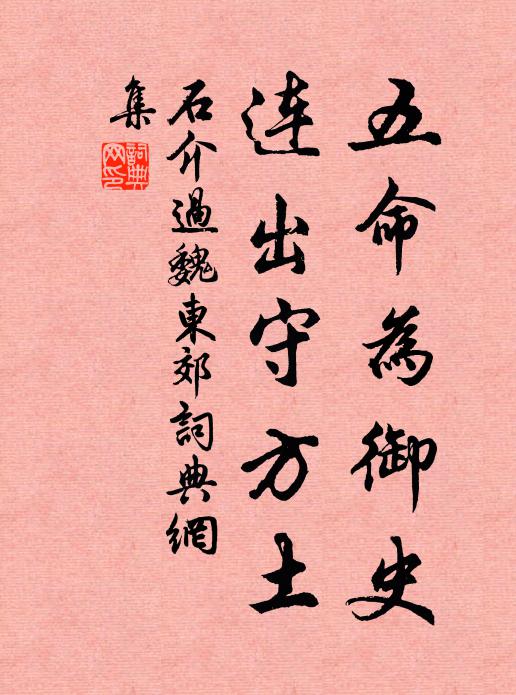 五命為御史
連出守方土
石介過魏東郊詞典網
集
詞典网印